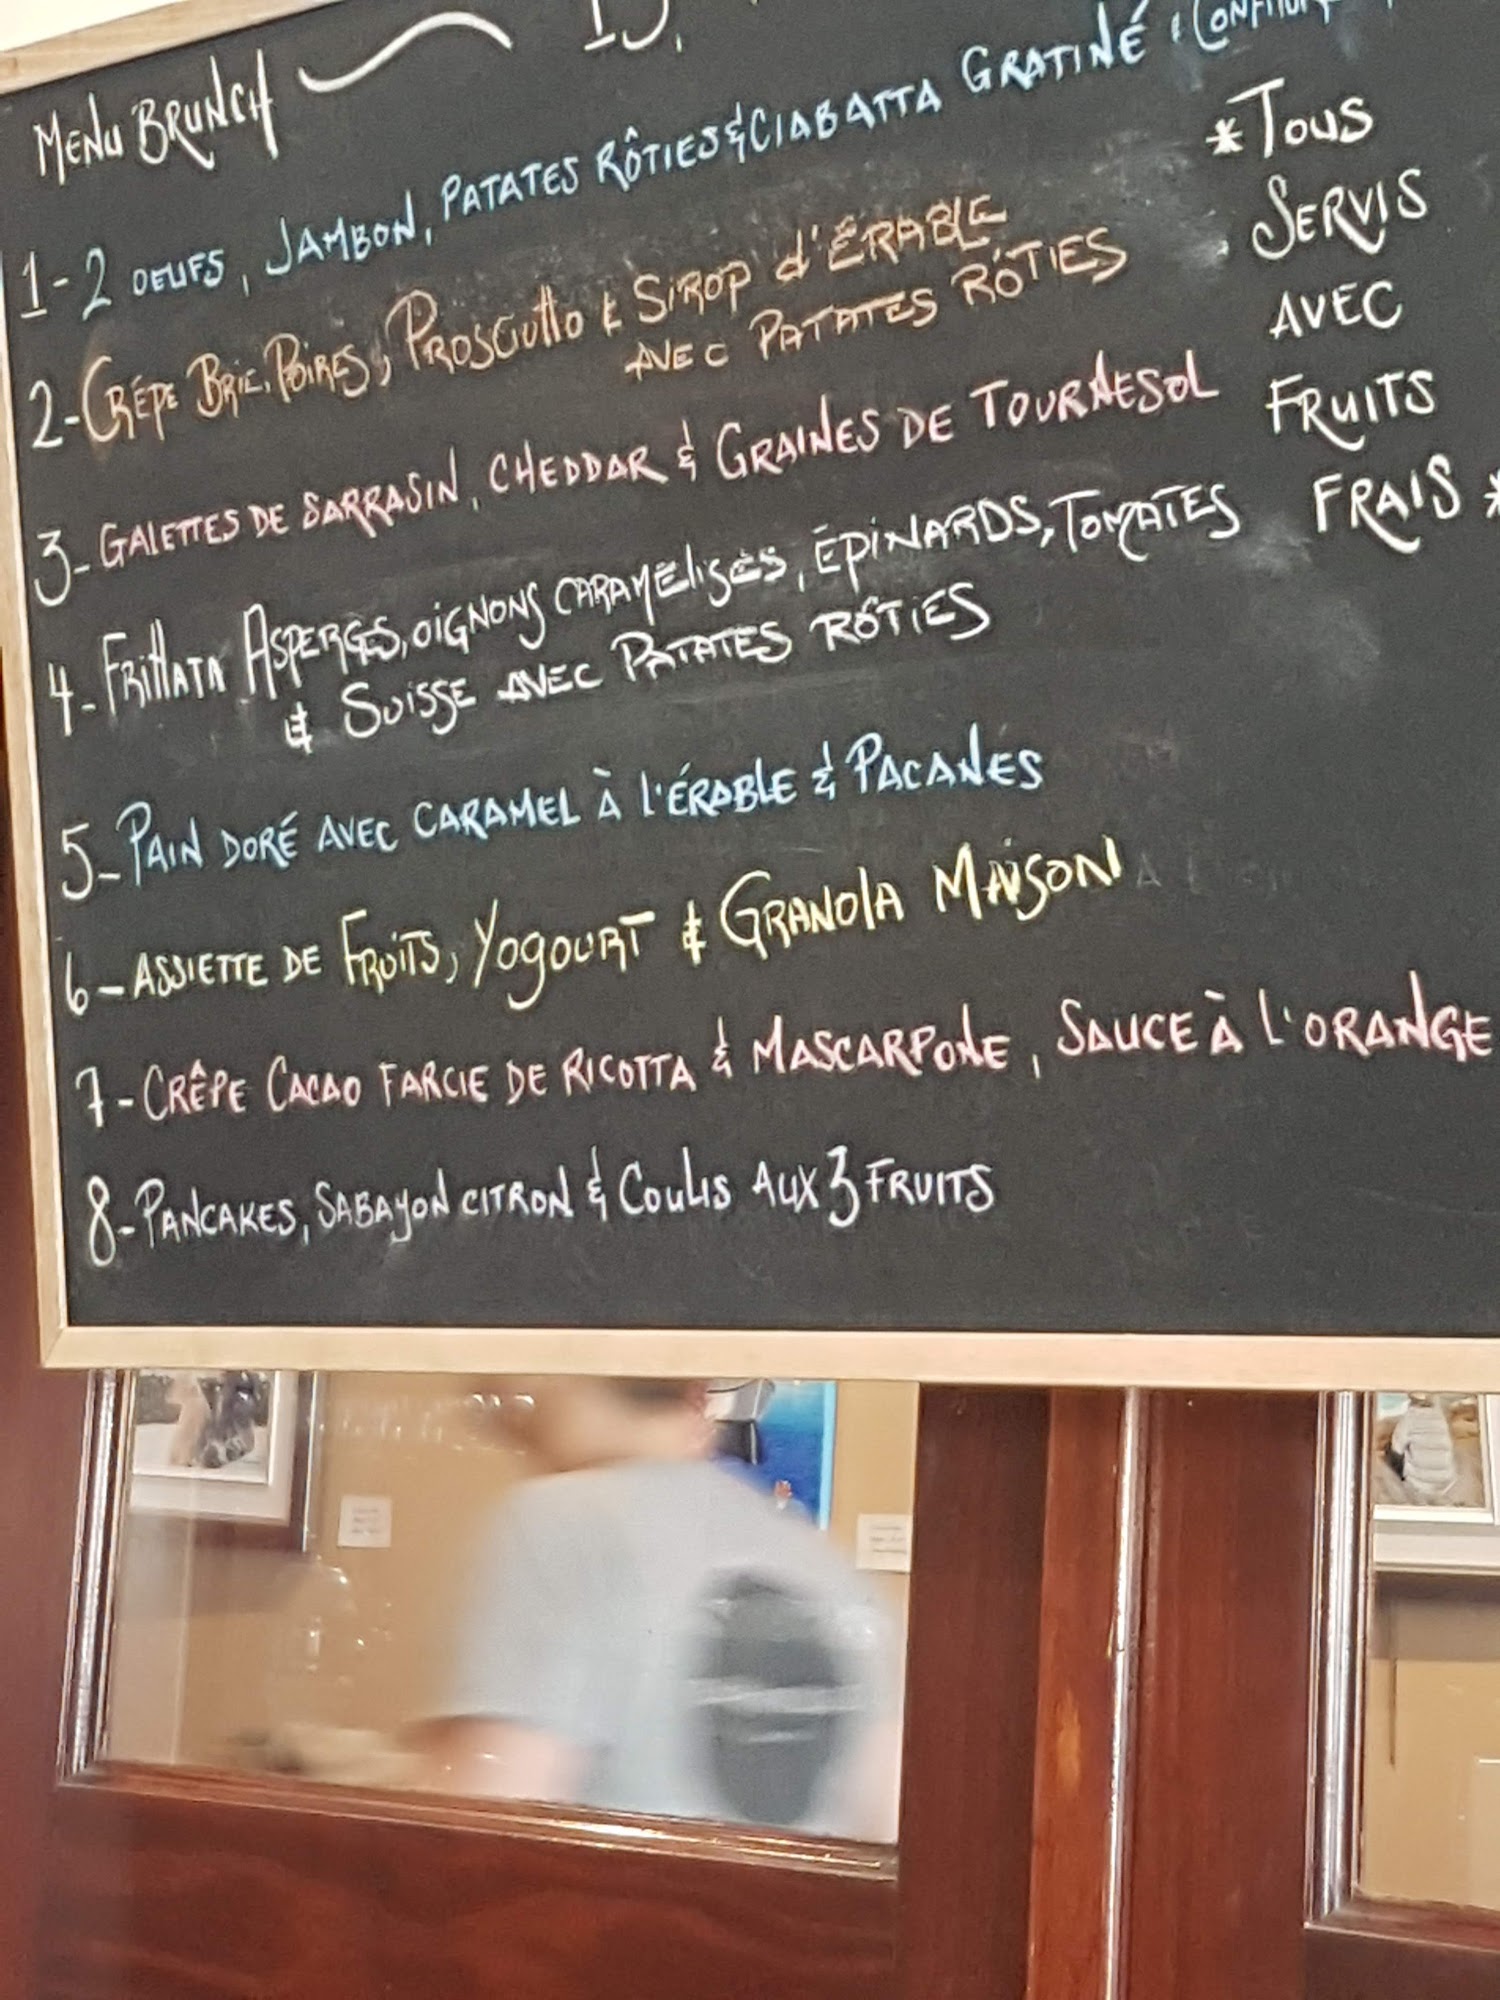 MENU BRUNCH
1-2 OEUFS, JAMBON, PATATES RÔTIES & CIABATTA GRATINÉ
2-CRÊPE BRIE, POIRES, PROSCIUTTO & SIROP d'ÉRABLE
AVEC PATATES RÔTIES
3-GALETTES DE SARRASIN, CHEDDAR & GRAINES DE TOURNESOL
4-FRITTATA ASPERGES, OIGNONS CARAMELISÉS, ÉPINARDS, TOMATES
& SUISSE AVEC PATATES RÔTIES
5-PAIN DORÉ AVEC CARAMEL À L'ÉRABLE & PACANES
6-ASSIETTE DE FRUITS, YOGOURT & GRANOLA MAISON
7-CRÊPE CACAO FARCIE DE RICOTTA & MASCARPONE, SAUCE À L'ORANGE
8-PANCAKES, SABAYON CITRON & COULIS AUX 3 FRUITS
*TOUS
SERVIS
AVEC
FRUITS
FRAIS*